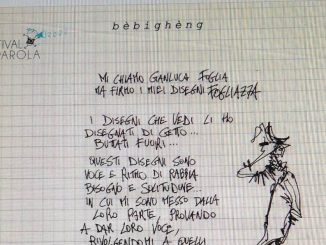 bèbighèng
TIVAL
PAROLA
MI CHIAMO GANLUCA FOGLIA
MA FIRMO I MIEI DISEGNI FOGLIAZZA
I DISEGNI CHE VEDI LI HO
DISEGNATI DI GETTO...
BUTTATI FUORI...
QUESTI DISEGNI SONO
VOCE E RITMO DI RABBIA
BISOGNO E SOLITUDINE...
IN CUI MI SONO MESSO DALLA
LORO PARTE, PROVANDO
A DAR LORO VOCE,
RIVOLGENDOMI A QUELLI